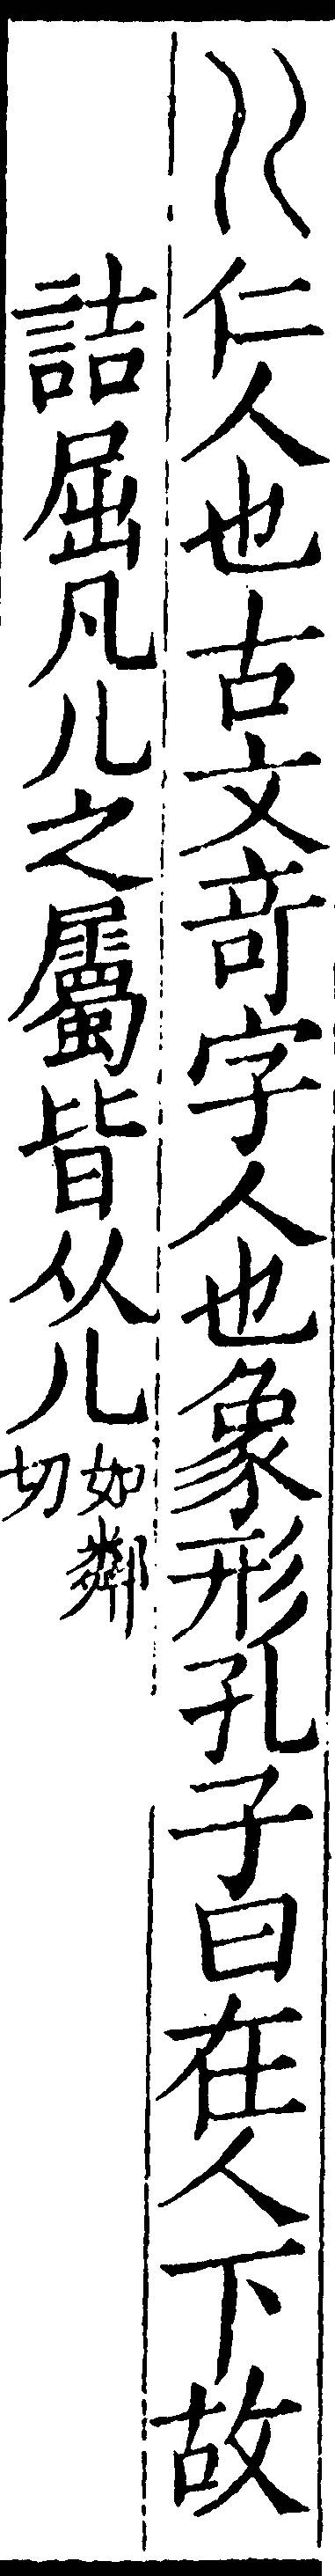 儿仁人也古文奇字人也象形孔子曰在人下故
詰屈凡儿之屬皆从儿如鄰切